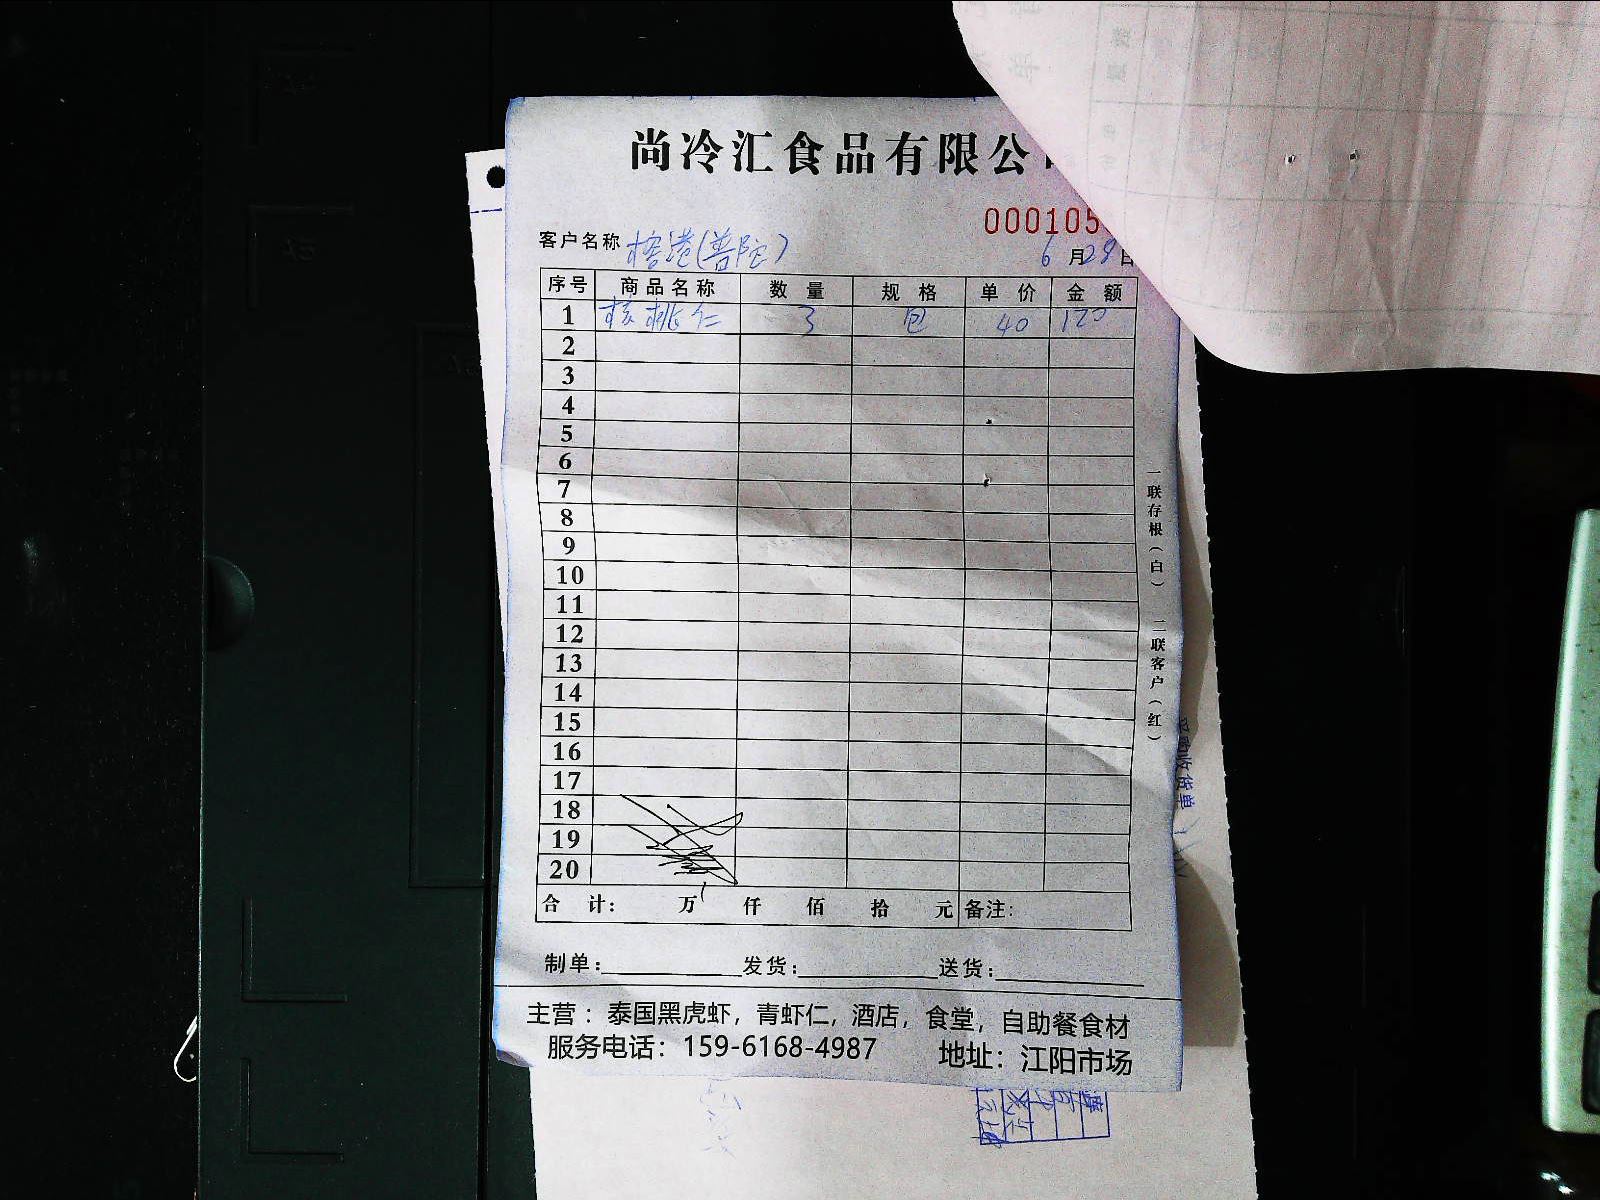 尚冷汇食品有限公
000105
客户名称 榕港(普陀) 6月29日
序号 商品名称 数量 规格 单价 金额
1 核桃仁 3 包 40 120
2
3
4
5
6
7
8
9
10
11
12
13
14
15
16
17
18
19
20
合计: 万 仟 佰 拾 元 备注:
制单: 发货: 送货:
主营：泰国黑虎虾，青虾仁，酒店，食堂，自助餐食材
服务电话：159-6168-4987 地址：江阳市场
一联存根(白) 二联客户(红)
采购收货单